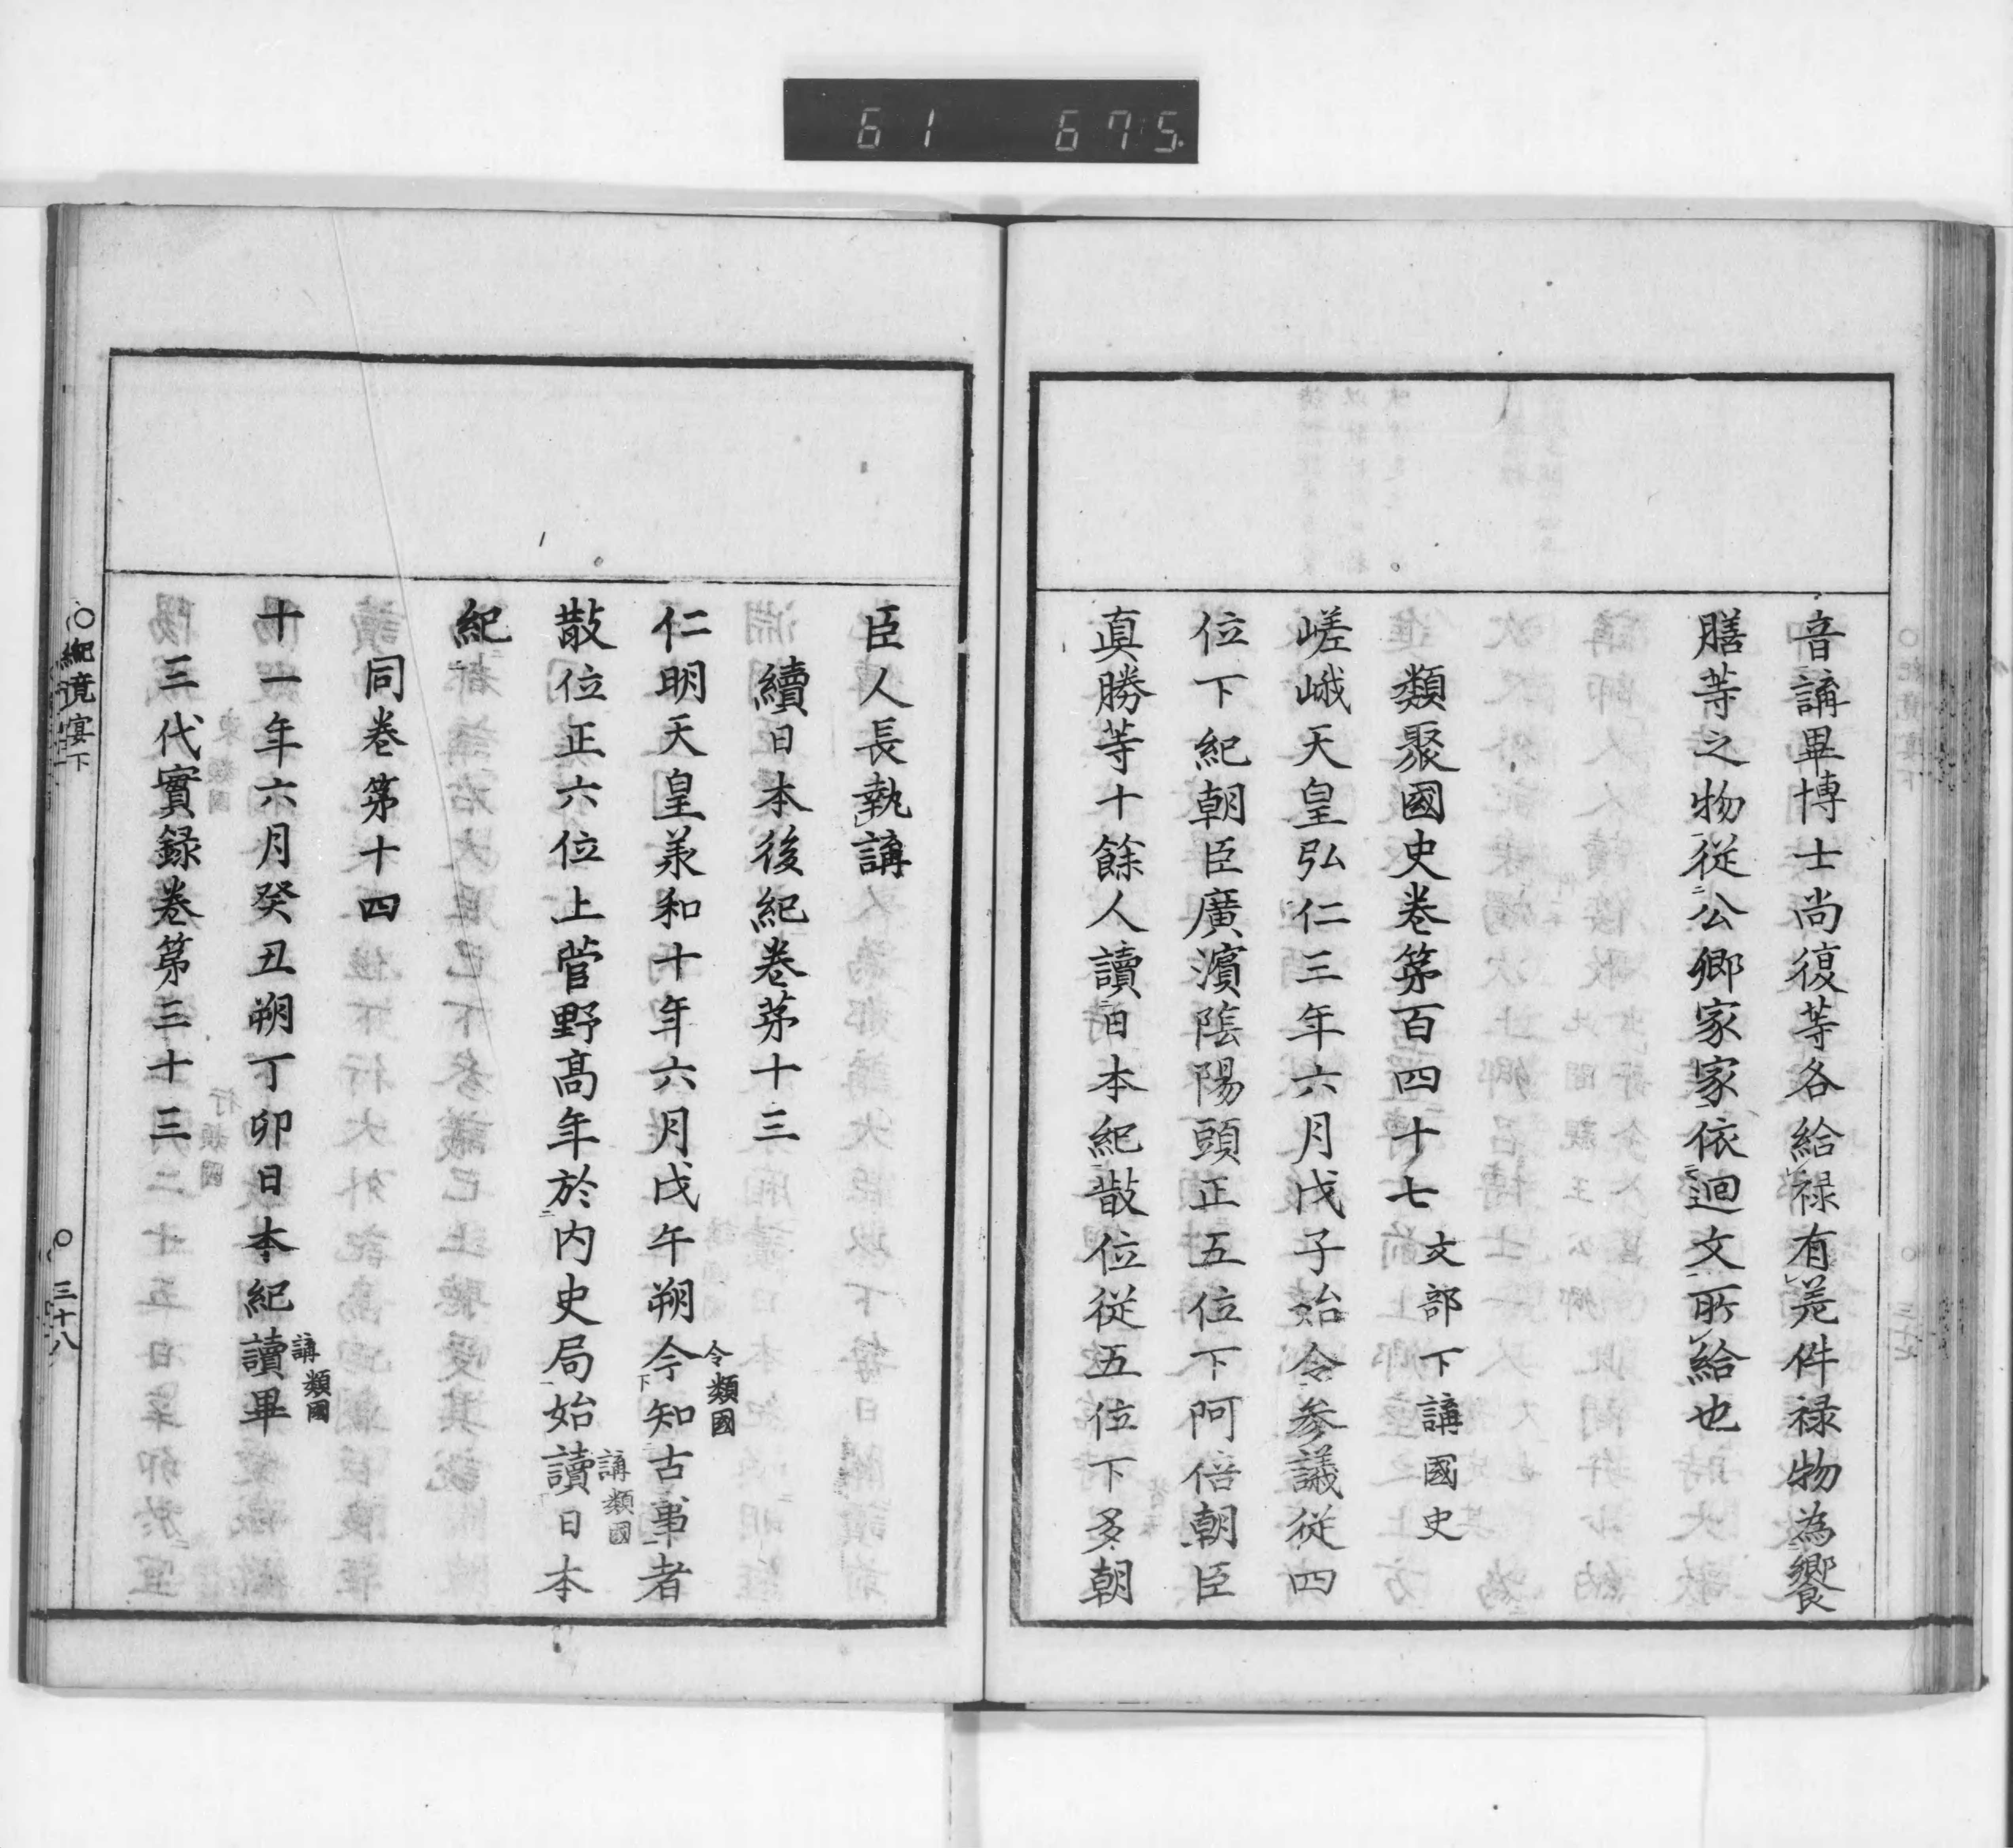 61 675
音講畢博士尚復等各給禄有差件禄物為饗
膳等之物従公卿家家依迴文所給也
類聚國史巻第百四十七 文部下講國史
嵯峨天皇弘仁三年六月戊子始令參議従四
位下紀朝臣廣濱陰陽頭正五位下阿倍朝臣
真勝等十餘人讀日本紀散位従五位下多朝
臣人長執講
續日本後紀巻第十三
仁明天皇羕和十年六月戊午朔今知古事者
令類國
散位正六位上菅野髙年於内史局始讀日本
講類國
紀
同巻第十四
十一年六月癸丑朔丁卯日本紀讀畢
講類國
三代實録巻第三十三
〇紀竟宴下 〇三十八